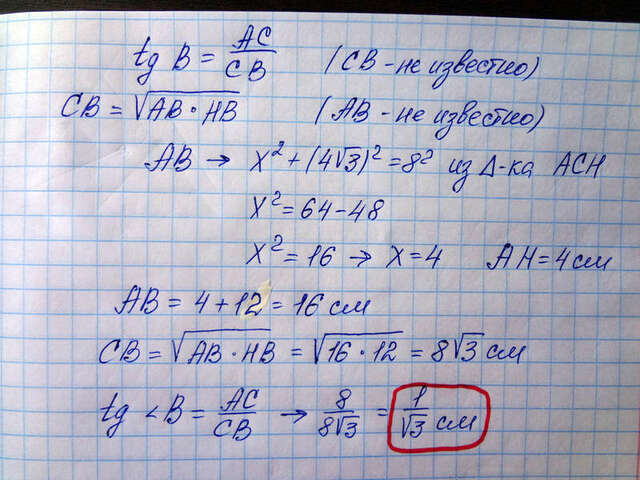 tg B = AC/CB (CB - не известно)
CB = √AB · HB (AB - не известно)
AB → x² + (4√3)² = 8² из Δ-ка ACH
x² = 64 - 48
x² = 16 → x = 4 AH = 4 см
AB = 4 + 12 = 16 см
CB = √AB · HB = √16 · 12 = 8√3 см
tg ∠B = AC/CB → 8/8√3 = 1/√3 см